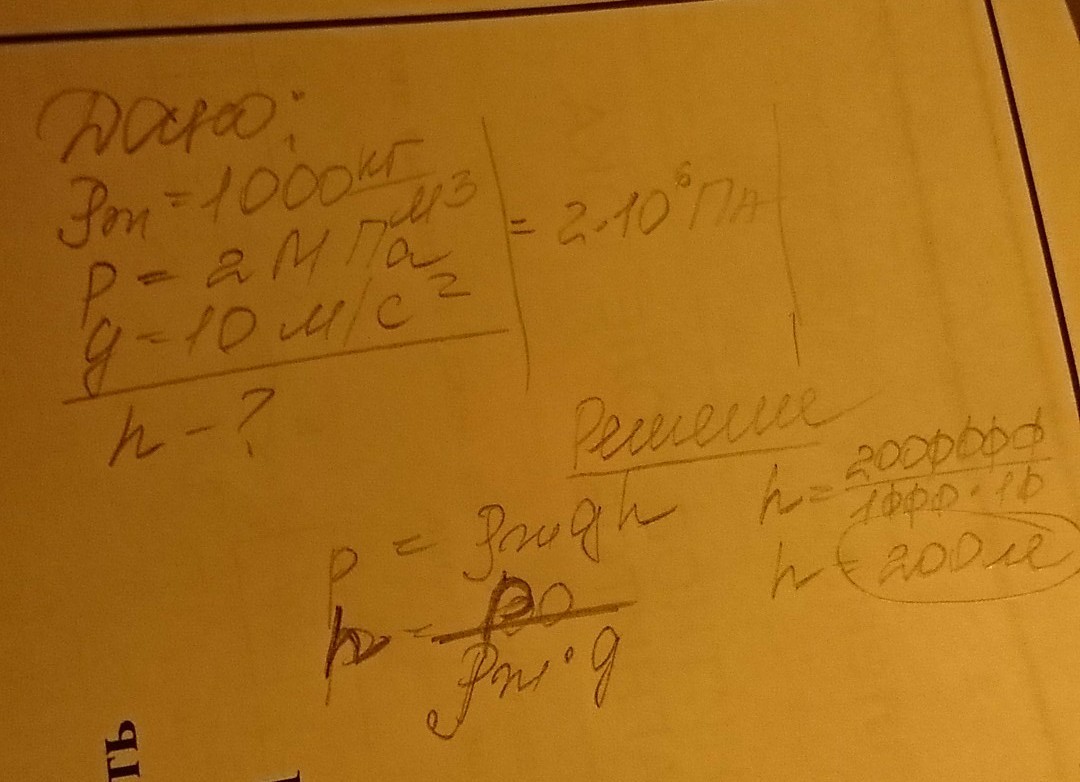 Дано:
ρж = 1000 кг/м³
p = 2 МПа = 2·10⁶ Па
g = 10 м/с²
h - ?
Решение
p = ρж g h
h = p/ρж·g
h = 2000000/1000·10
h = 200 м
ть